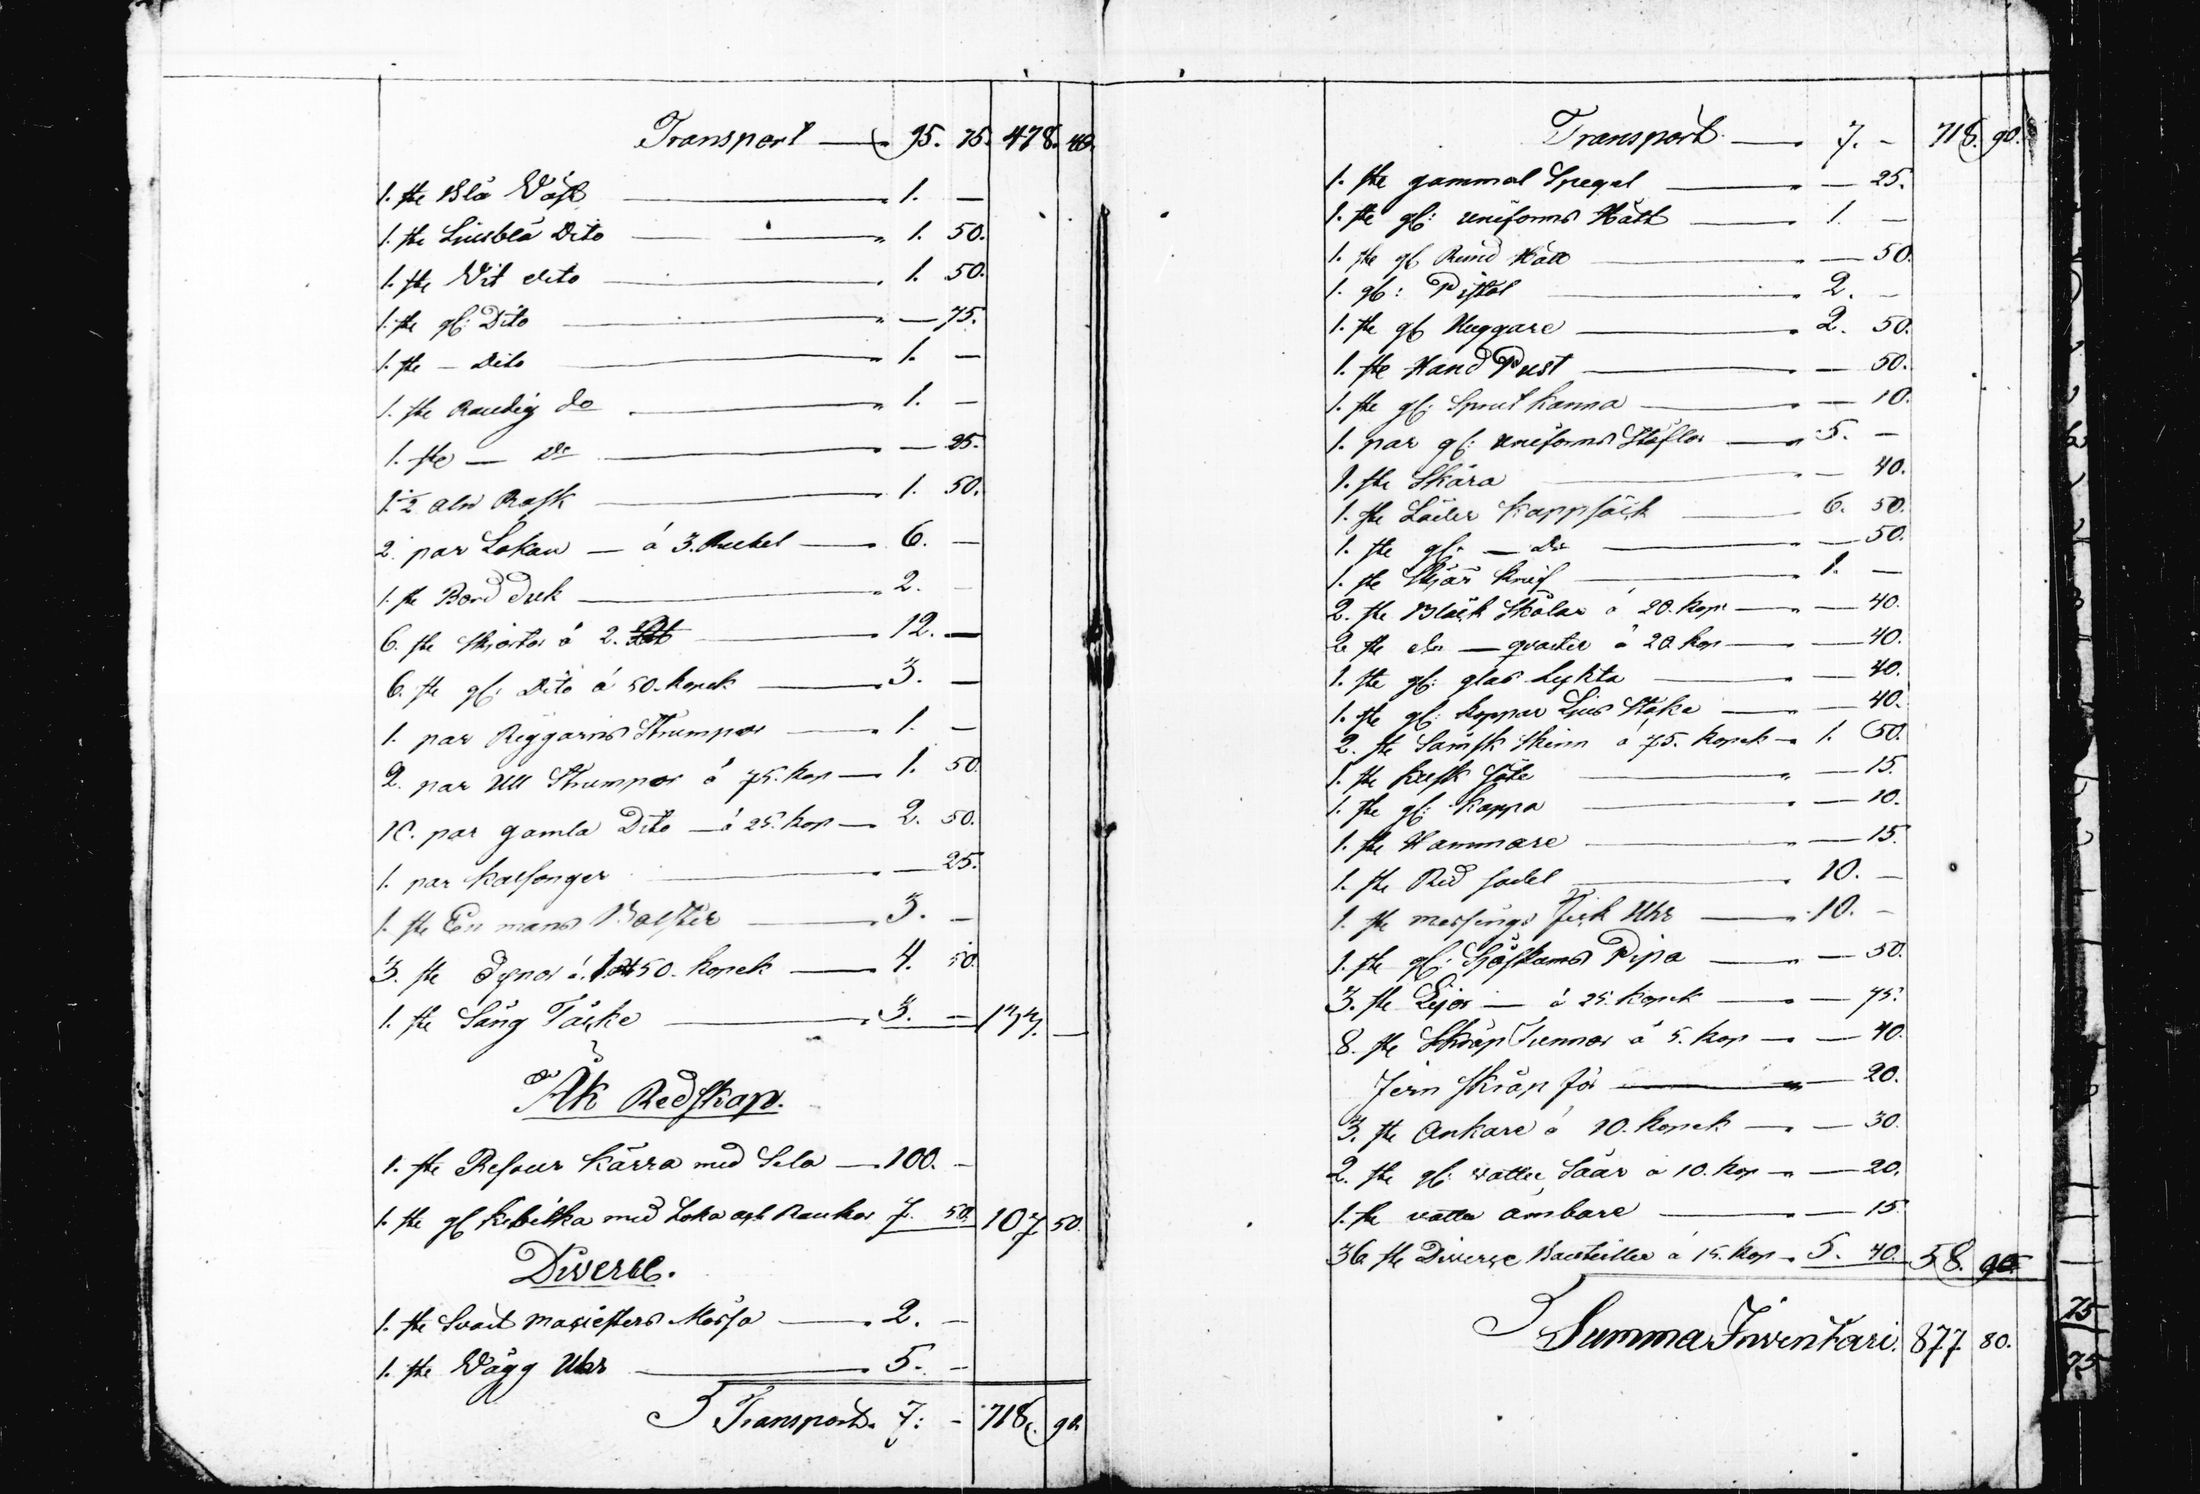 Transport — 95. 75. 478. 40.
1. ste Blå Väst — 1. —
1. ste Liusblå Dito — 1. 50.
1. ste Wit dito — 1. 50.
1. ste gl: Dito — 75.
1. ste — Dito — 1. —
1. ste Randig do — 1. —
1. ste — do — 25.
1½ aln Rask — 1. 50.
2. par Lakan — á 3. Rubel — 6. —
1. ste Bord duk — 2. —
6. ste Skjortor á 2. — 12. —
6. ste gl: Dito á 50. kopek — 3. —
1. par Strumpor — 1. —
2. par Ull Strumpor á 75. kop — 1. 50.
10. par gamla Dito — á 25. kop — 2. 50.
1. par kalsonger — 25.
1. ste En mans Bolster — 3. —
3. ste Dynor á 1. 50. kopek — 4. 50.
1. ste Säng Täcke — 3. — 177. —
Åk Redskap.
1. ste Resour kärra med Sela — 100. —
1. ste gl kibitka med Loka och Rankor 7. 50. 107 50.
Diverse.
1. ste Mössa — 2. —
1. ste Vägg Uhr — 5. —
Transport. 7: — 718. 90.
Transport — 7. — 718. 90.
1. ste gammal Spegel — 25.
1. ste gl: uniforms Hatt — 1. —
1. ste gl Rund Hatt — 50.
1. gl: Pistol — 2. —
1. ste gl Huggare — 2. 50.
1. ste Hand Pust — 50.
1. ste gl: Sprut kanna — 10.
1. par gl: uniforms Stöflor — 5. —
1. ste Skära — 40.
1. ste Läder kappsäck — 6. 50.
1. ste gl: — do — 50.
1. ste knif — 1. —
2. ste Bläck Skålar á 20. kop: — 40.
2. ste do — qvarter á 20 kop — 40.
1. ste gl: glas Lykta — 40.
1. ste gl: koppar Lius Stake — 40.
2. ste Sämsk Skinn á 75. kopek — 1. 50.
1. ste — 15.
1. ste gl: kappa — 10.
1. ste Hammare — 15.
1. ste Rid sadel — 10. —
1. ste messings Fick Uhr — 10. —
1. ste gl: Sjöskums Pipa — 50.
3. ste Lijor — á 25. kopek — 75.
8. ste Skräp Tunnor á 5. kop — 40.
Jern skräp för — 20.
3. ste Ankare á 10. kopek — 30.
2. ste gl: vatten Såar á 10. kop — 20.
1. ste vatten ämbare — 15.
36 ste Diverse Bouteiller á 15. kop — 5. 40. 58. 90
Summa Inventari. 877 80.
75
75